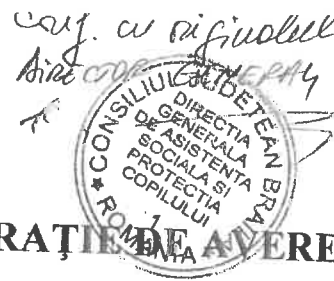 conf. cu originalul
DIRECTOR GENERAL
CONSILIUL JUDEȚEAN BRA
DIRECȚIA
GENERALA
DE ASISTENTA
SOCIALA SI
PROTECTIA
COPILULUI
ROMÂNIA
RAȚIE DE AVERE